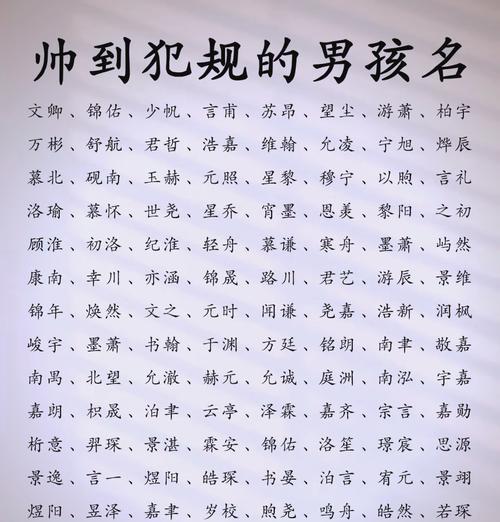 帅到犯规的男孩名
文卿、锦佑、少帆、言甫、苏昂、望尘、游萧、柏宇
万彬、舒航、君哲、浩嘉、维翰、允凌、宁旭、烨辰
慕北、砚南、玉赫、元照、星黎、穆宁、以煦、言礼
洛瑜、慕怀、世尧、星乔、宵墨、恩美、黎阳、之初
顾淮、初洛、纪淮、轻舟、慕谦、寒舟、墨萧、屿然
康南、幸川、亦涵、锦晟、路川、君艺、游辰、景维
锦年、焕然、文之、元时、闻谦、尧嘉、浩新、润枫
峻宇、墨萧、书翰、于渊、方廷、铭朗、南聿、敬嘉
南禺、北望、允澈、赫元、允诚、庭洲、南泓、宇嘉
嘉朗、枳晟、泊聿、云亭、泽霖、嘉齐、宗言、嘉勋
桁意、羿琛、景湛、霖安、锦佑、洛笙、璟宸、思源
景逸、言一、煜阳、皓琛、书晏、泊言、宥元、景翊
煜阳、昱泽、嘉聿、岁校、煦尧、鸣舟、皓然、若琛